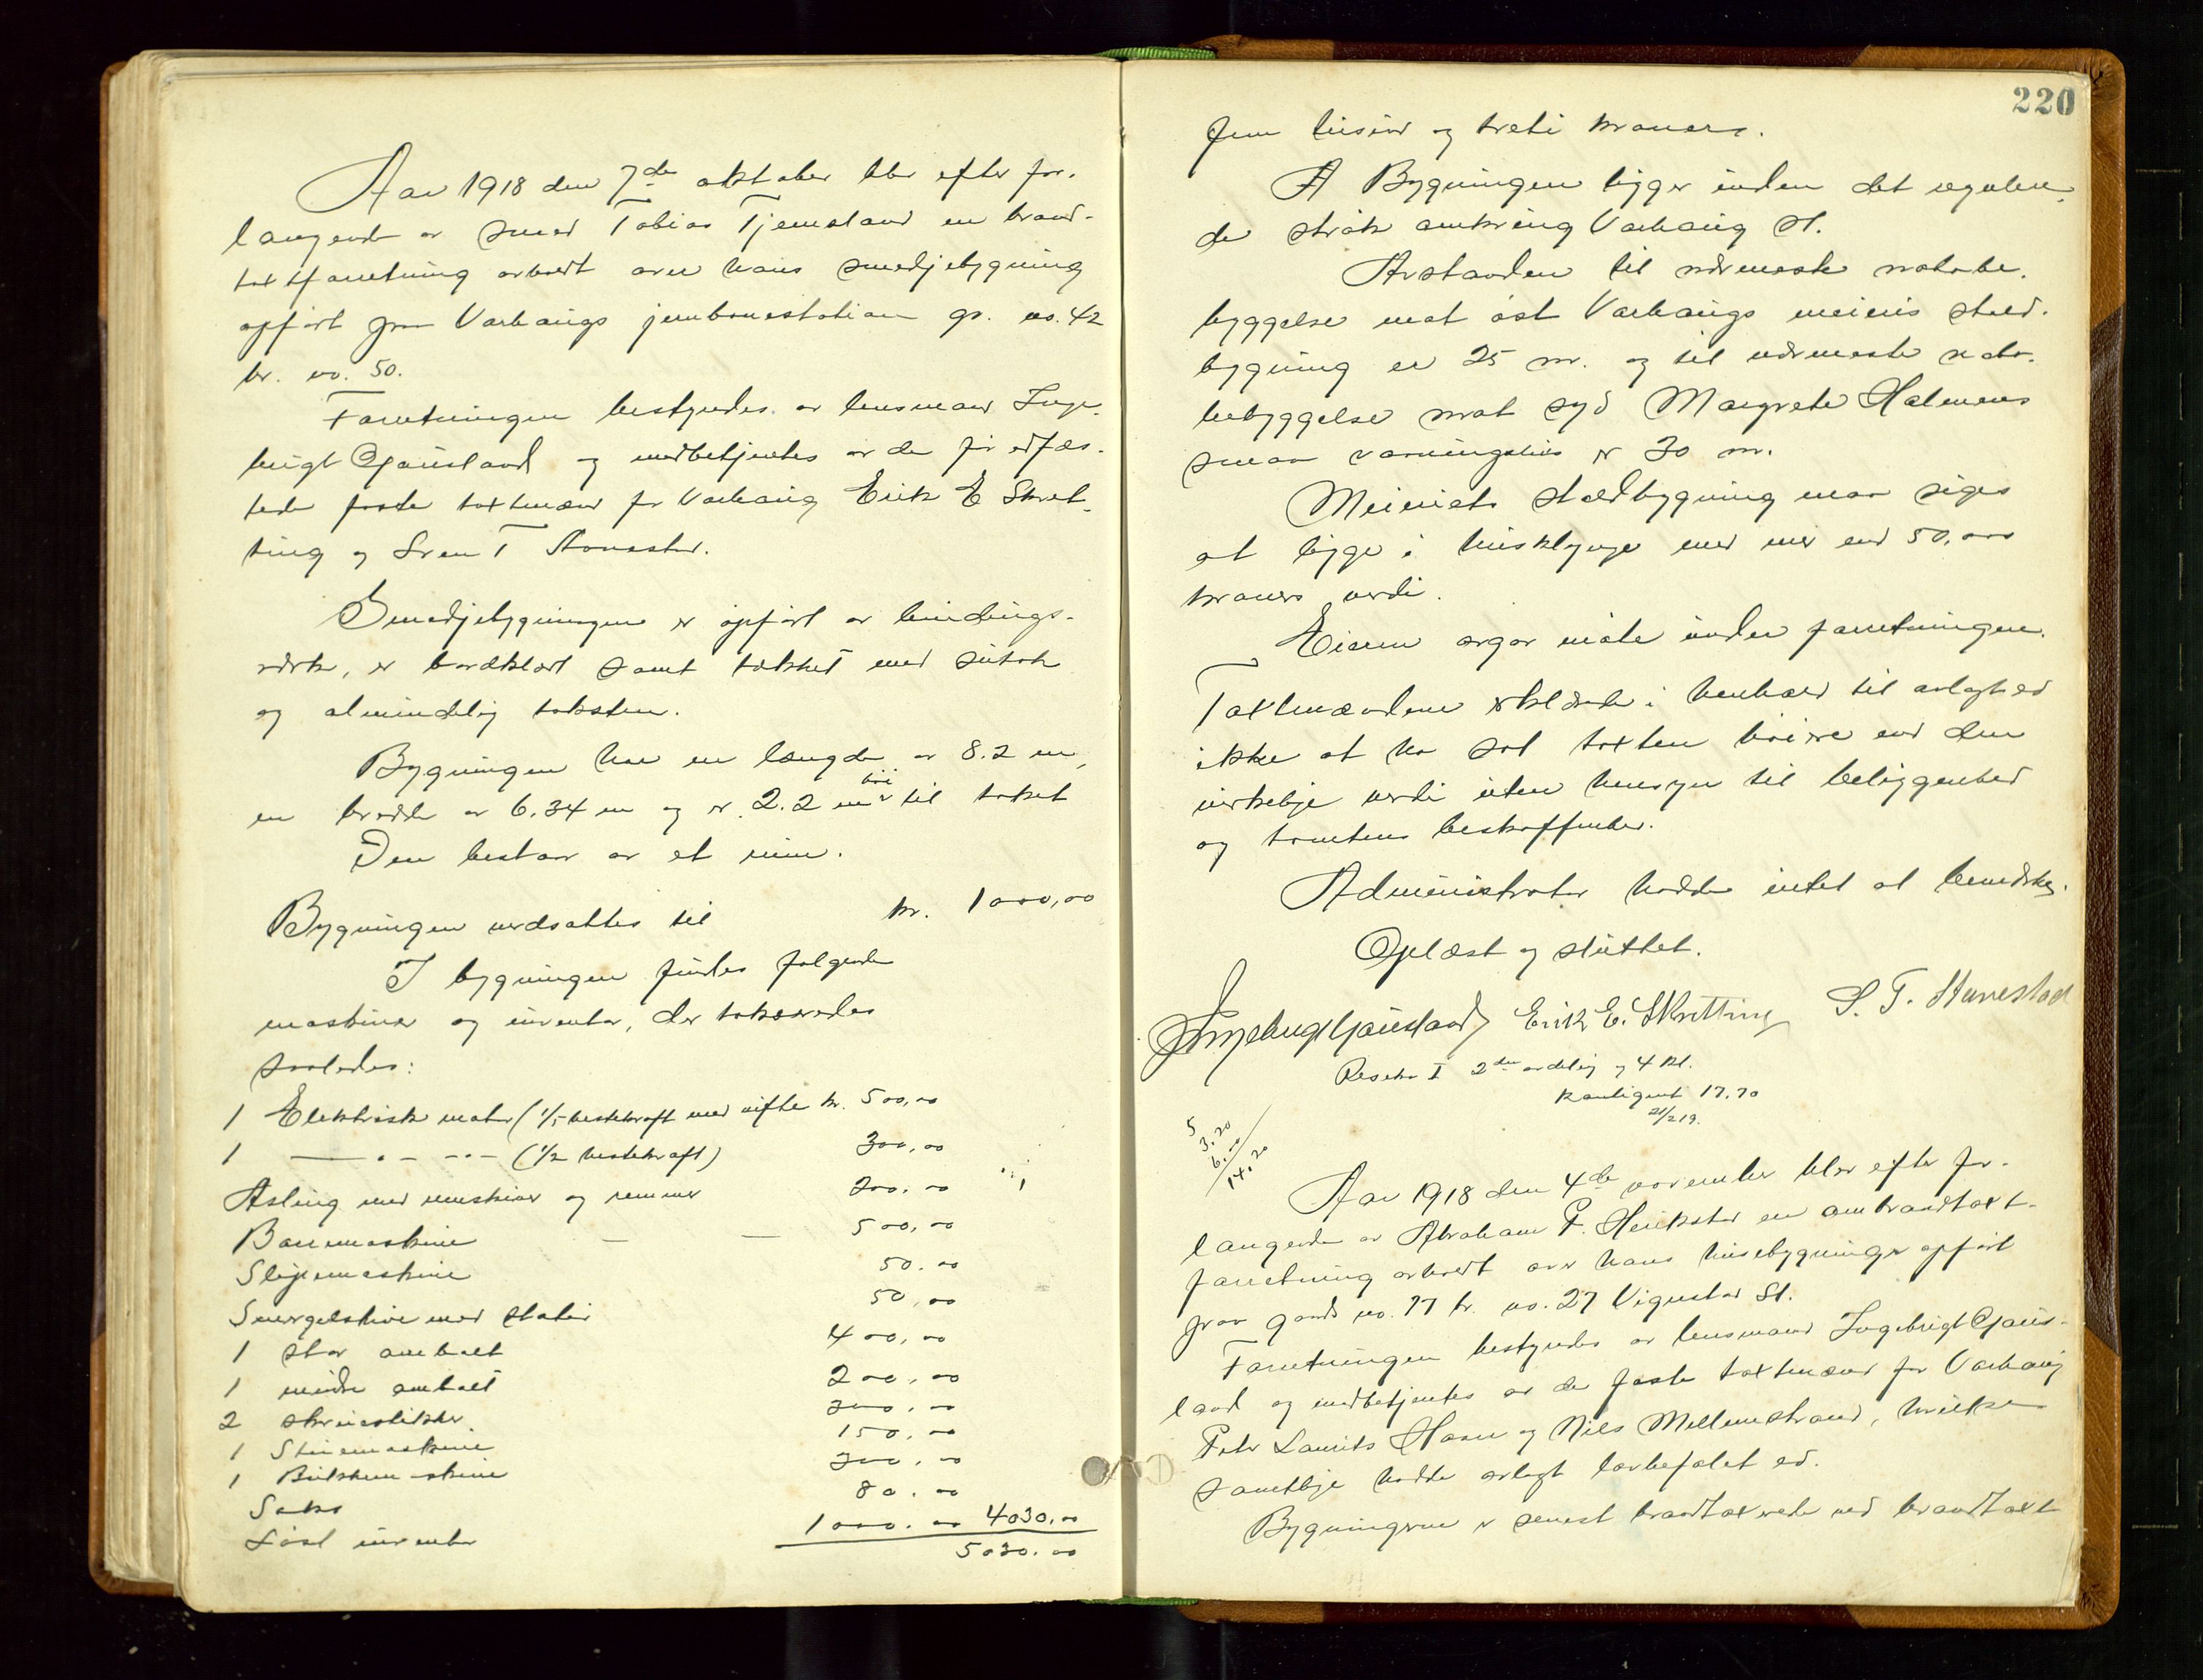 Aar 1918 den 7de oktober blev efter for-
langende av smed Tobias Tjemsland en brand-
taxtforretning avholdt over hans smedjebygning
opført paa Varhaugs jernbanestation gr. no. 42
br. no. 50.
Forretningen bestyredes av lensmand Inge-
brigt Gausland og medbetjentes av de før edfæs-
tede faste taxtmænd for Varhaug Erik E Skret-
ting og Sven T Hanestad.
Smedjebygningen er opført av bindings-
verk, er bordklædt samt tækket med sutak
og almindelig taksten.
Bygningen har en længde av 8.2 m,
en bredde av 6.34 m og er 2.2 m høi til taket
Den bestaar av et rum.
Bygningen verdsattes til kr. 1000,00
I bygningen findes følgende
maskiner og inventar, der takseredes
saaledes:
1 Elektrisk motor (1/5 hestekraft med vifte kr. 500,00
1 —"— —"— (1/2 hestekraft) 300,00
Asling med remskiver og remmer 200.00
Boremaskine — — 500,00
Slipemaskine 50.00
Smergelskive med stativ 50,00
1 stor ambolt 400,00
1 mindre ambolt 200,00
2 skruestikker 300.00
1 150.00
1 300.00
Saks 80.00
Løst inventar 1000.00 4030,00
5030.00
220
fem tusind og treti kroner.
Bygningen ligger inden det reguleren-
de strøk omkring Varhaug St.
Avstanden til nærmeste nabobe-
byggelse mot øst Varhaugs meieris stald-
bygning er 25 m. og til nærmeste nabo-
bebyggelse mot syd Margrete Halmens
smaa vaaningshus er 30 m.
Meieriets staldbygning maa siges
at ligge i husklynge med mer end 50.000
kroners verdi.
Eieren avgav møte under forretningen.
Taxtmændene erklærte i henhold til avlagt ed
ikke at ha sat taxten høiere end den
virkelige verdi uten hensyn til beliggenhed
og tomtens beskaffenhet.
Administrator hadde intet at bemerke.
Oplæst og sluttet.
Ingebrigt Gausland Erik E. Skretting S. T. Hanestad
2den avdeling og 4 kl.
Kontigent 17.70
21/2 19.
5
3.20
6.00
14.20
Aar 1918 den 4de november blev efter for-
langende av Abraham P. Herikstad en ombrandtaxt-
forretning avholdt over hans husebygninger opført
paa gaards no. 17 br. no. 27 Vigrestad St.
Forretningen bestyredes av lensmand Ingebrigt Gaus-
land og medbetjentes av de faste taxtmænd for Varhaug
Peter Laurits Haaver og Nils Mellemstrand, hvilke
samtlige hadde avlagt lovbefalet ed.
Bygningerne er senest brandtaxerede ved brandtaxt